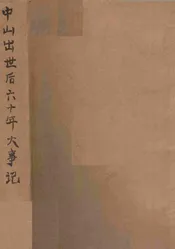 中山出世后六十年大事记